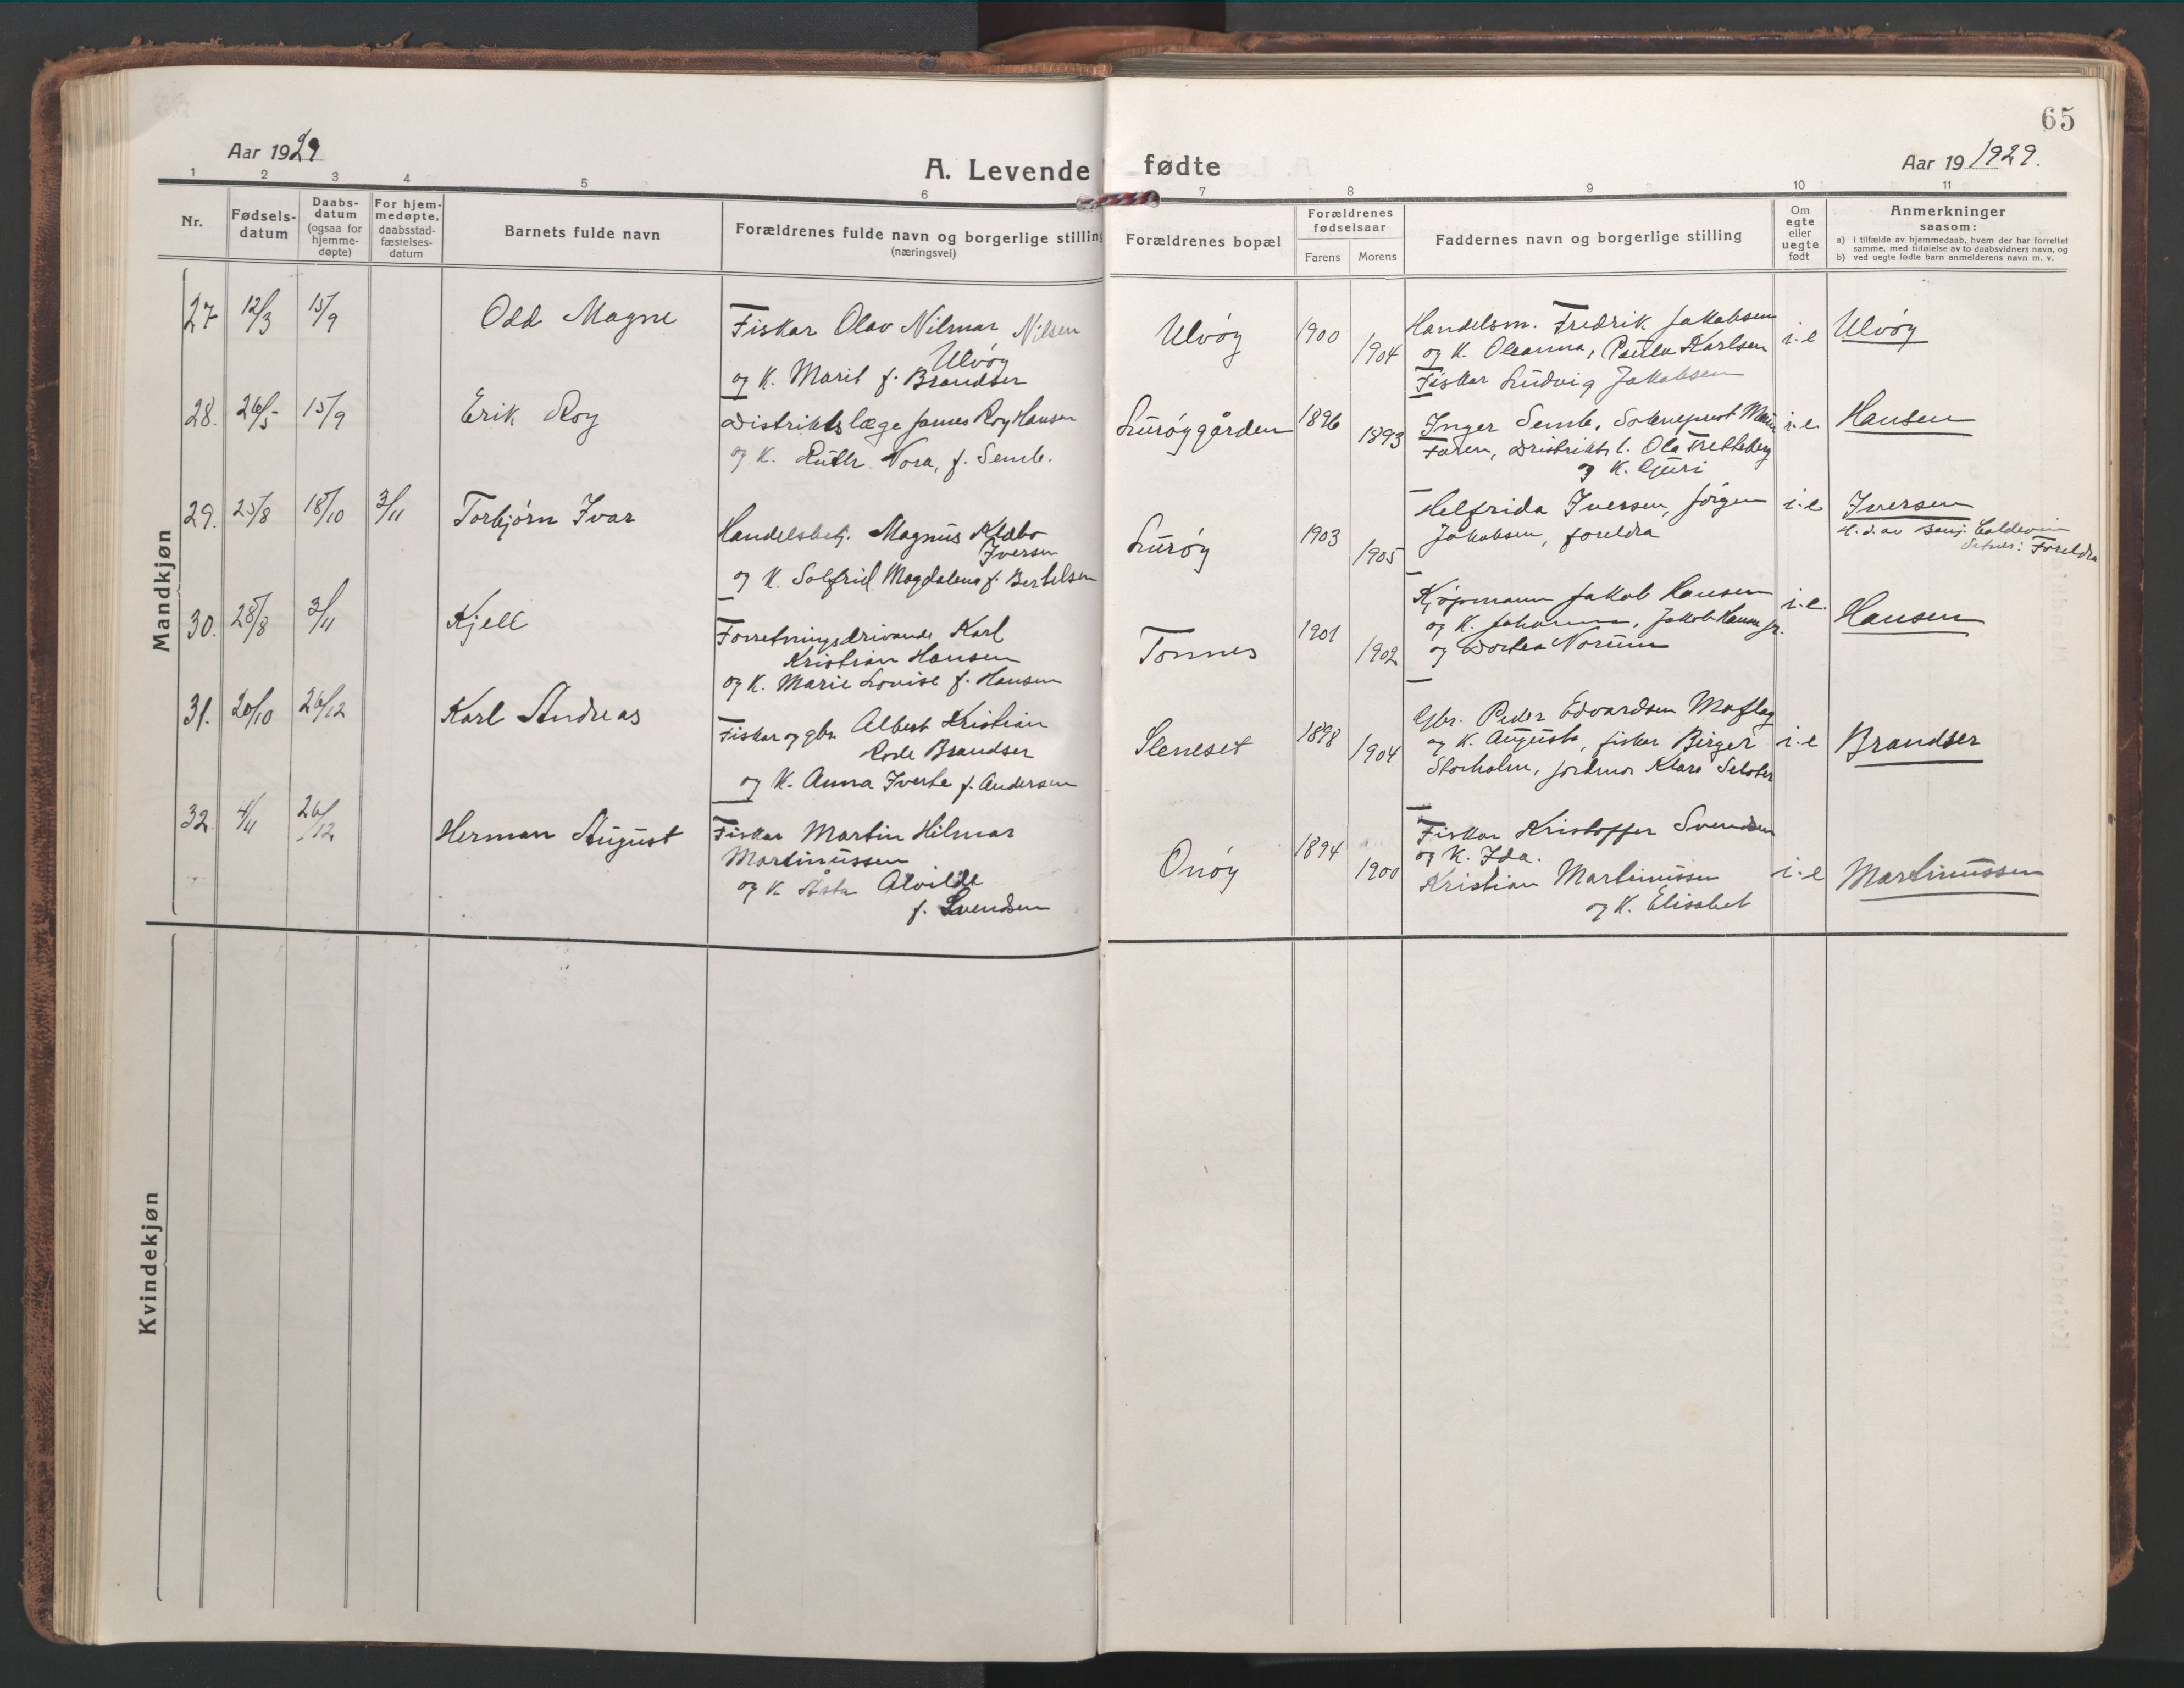 65
Aar 1929
A. Levende fødte
Aar 19 1929.
1 2 3 4 5 6 7 8 9 10 11
Nr.
Fødsels-
datum
Daabs-
datum
(ogsaa for
hjemme-
døpte)
For hjem-
medøpte,
daabsstad-
fæstelses-
datum
Barnets fulde navn
Forældrenes fulde navn og borgerlige stilling
(næringsvei)
Forældrenes bopæl
Forældrenes
fødselsaar
Farens Morens
Faddernes navn og borgerlige stilling
Om
egte
eller
uegte
født
Anmerkninger
saasom:
a) i tilfælde av hjemmedaab, hvem der har forrettet
samme, med tilføielse av to daabsvidners navn, og
b) ved uegte fødte barn anmelderens navn m. v.
Mandkjøn
27 12/3 15/9
Odd Magne
Fiskar Olav Nilmar Nilsen
Ulvöy
og K. Marit f. Brandser
Ulvöy
1900
1904
Handelsm. Fredrik Jakobsen
og K. Oleanna, Paula Karlsen
Fiskar Ludvig Jakobsen
i-e
Ulvöy
28. 26/5 15/9
Erik Roy
Distriktslæge James Roy Hansen
og K. Ruth Nora, f. Semb.
Luröygården
1896
1893
Inger Semb, Sokneprest
Distrikts l. Ola Tretteberg
og K. Guri
i-e
Hansen
29. 25/8 18/10 3/11
Torbjörn Ivar
Handelsbetj. Magnus Klæbo
Iversen
og K. Solfrid Magdalena f. Bertelsen
Luröy
1903
1905
Helfrida Iversen, Jörgen
Jakobsen, foreldra
i-e
Iversen
H. d. av Benj.
Foreldra
30. 28/8 3/11
Kjell
Forretningsdrivande Karl
Kristian Hansen
og K. Marie Lovise f. Hansen
Tonnes
1901
1902
Kjöpmann Jakob Hansen
og K. Johanna, Jakob Hansen jr.
og Dortea Norum
i-e.
Hansen
31. 20/10 26/12
Karl Andreas
Fiskar og gbr. Albert Kristian
Rode Brandser
og K. Anna Iverte f. Andersen
Sleneset
1898
1904
Gbr. Peder Edvardsen Moflag
og K. Augusta, fiskar Birger
Storholm, jordmor Klara
i-e
Brandser
32. 4/11 26/12
Herman August
Fiskar Martin Hilmar
Martinussen
og K. Åsta Alvilde
f. Svendsen
Onöy
1894
1900
Fiskar Kristoffer Svendsen
og K. Ida.
Kristian Martinussen
og K. Elisabet
i-e
Martinussen
Kvindekjøn